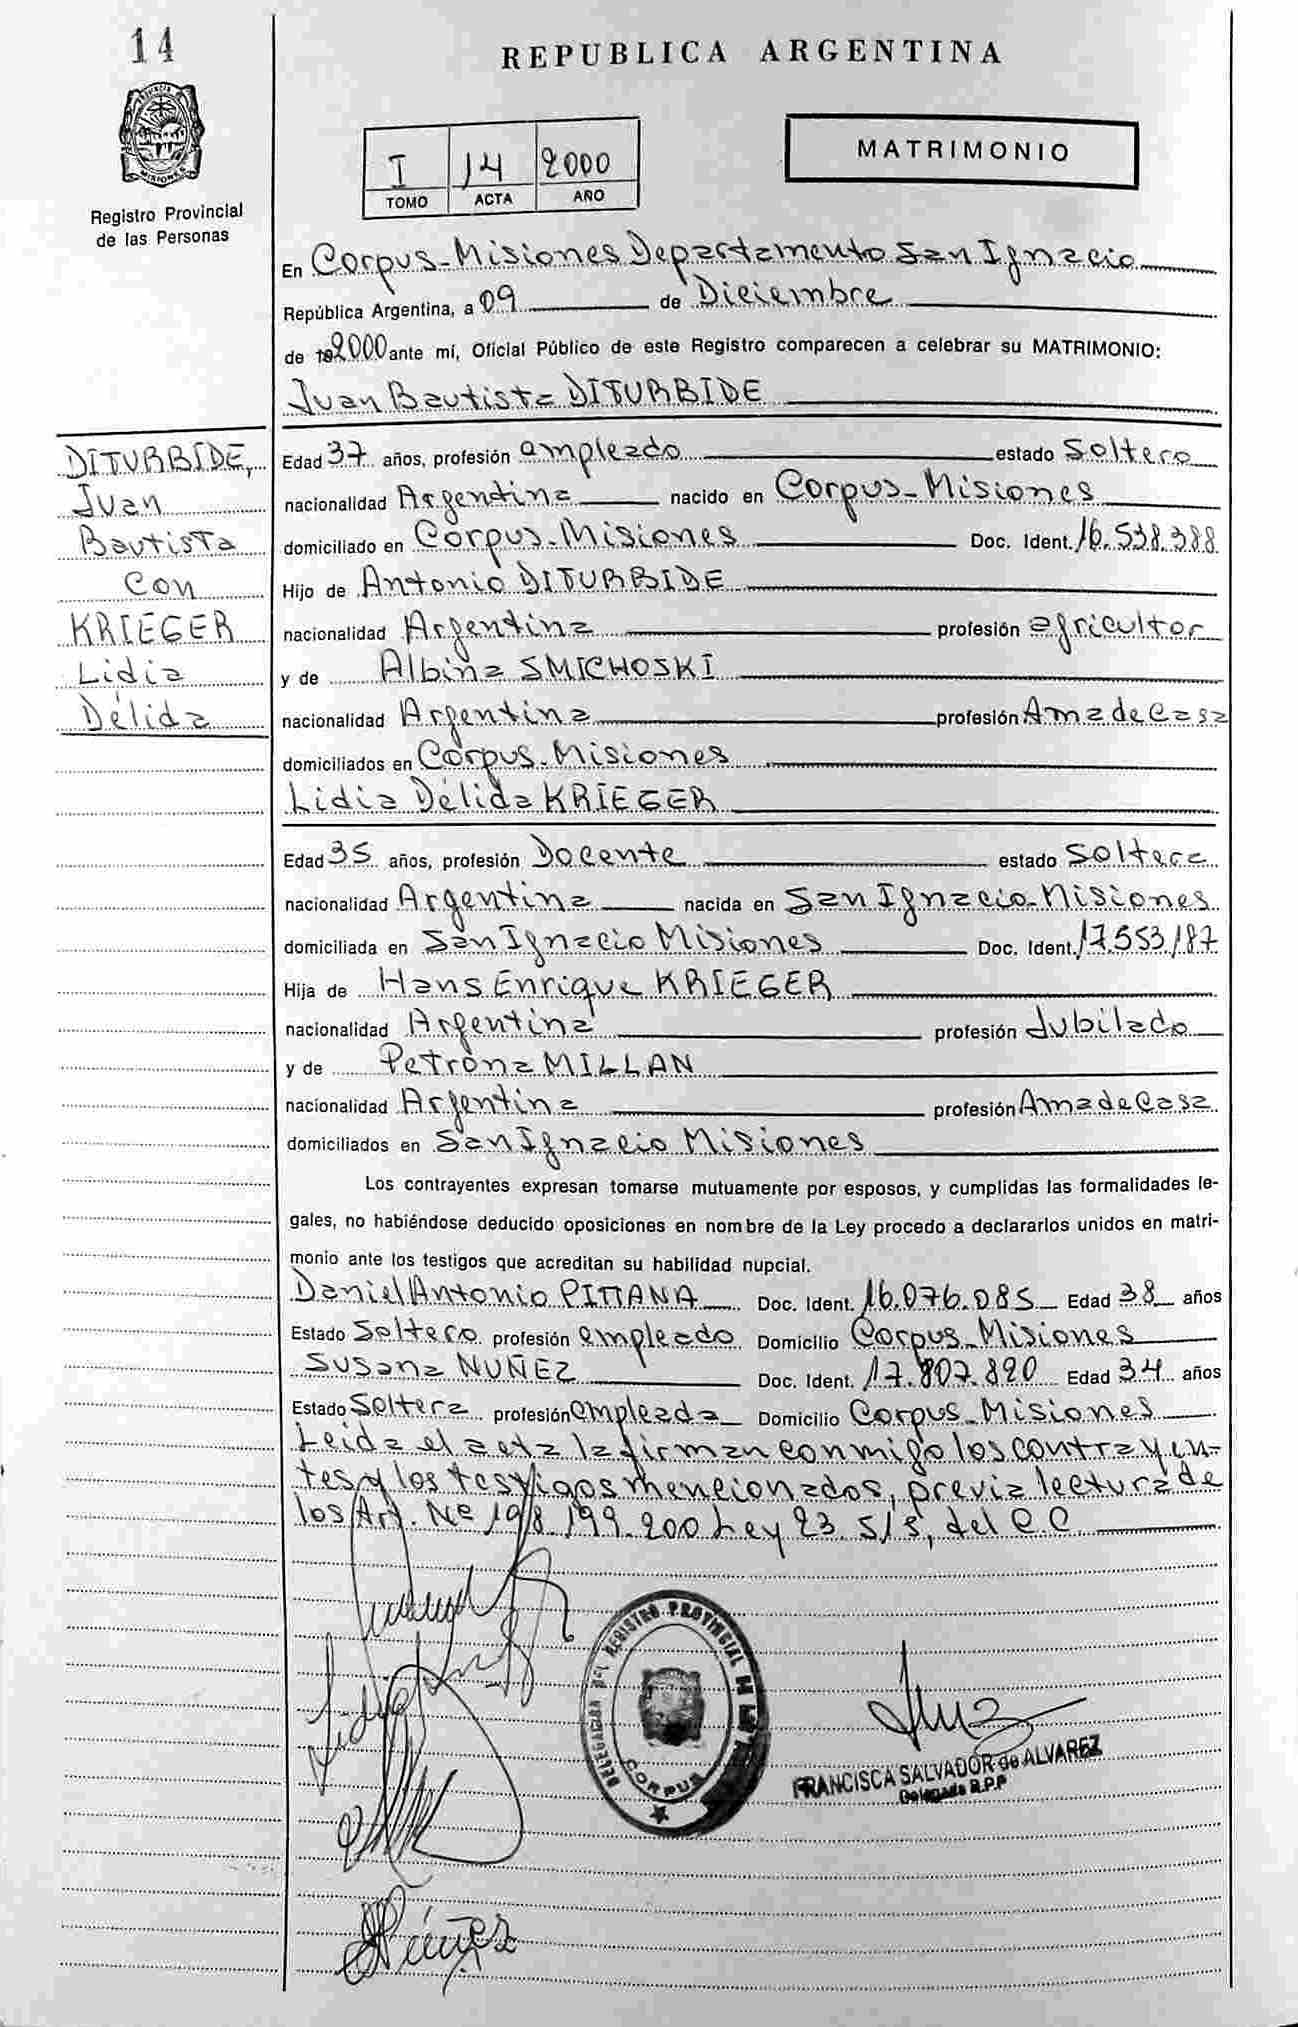 14
REPUBLICA ARGENTINA
PROVINCIA
MISIONES
Registro Provincial
de las Personas
I 14 2000
TOMO ACTA AÑO
MATRIMONIO
En Corpus-Misiones Departamento San Ignacio
República Argentina, a 09 de Diciembre
de 192000 ante mí, Oficial Público de este Registro comparecen a celebrar su MATRIMONIO:
Juan Bautista DITURBIDE
DITURBIDE,
Juan
Bautista
Con
KRIEGER
Lidia
Délida
Edad 37 años, profesión empleado estado Soltero
nacionalidad Argentina nacido en Corpus-Misiones
domiciliado en Corpus-Misiones Doc. Ident. 16.538.388
Hijo de Antonio DITURBIDE
nacionalidad Argentina profesión agricultor
y de Albina SMICHOSKI
nacionalidad Argentina profesión Ama de Casa
domiciliados en Corpus-Misiones
Lidia Délida KRIEGER
Edad 35 años, profesión Docente estado Soltera
nacionalidad Argentina nacida en San Ignacio-Misiones
domiciliada en San Ignacio Misiones Doc. Ident. 17.553.187
Hija de Hans Enrique KRIEGER
nacionalidad Argentina profesión Jubilado
y de Petrona MILLAN
nacionalidad Argentina profesión Ama de Casa
domiciliados en San Ignacio Misiones
Los contrayentes expresan tomarse mutuamente por esposos, y cumplidas las formalidades le-
gales, no habiéndose deducido oposiciones en nombre de la Ley procedo a declararlos unidos en matri-
monio ante los testigos que acreditan su habilidad nupcial.
Daniel Antonio PITTANA Doc. Ident. 16.076.085 Edad 38 años
Estado Soltero profesión empleado Domicilio Corpus-Misiones
Susana NUÑEZ Doc. Ident. 17.807.820 Edad 34 años
Estado Soltera profesión empleada Domicilio Corpus-Misiones
Leida el acta la firman conmigo los contrayen-
tes y los testigos mencionados, previa lectura de
los Art. Nº 198.199.200 Ley 23.515, del C.C.
Lidia
DELEGACION DEL REGISTRO PROVINCIAL DE LAS
CORPUS
FRANCISCA SALVADOR de ALVAREZ
Delegada R.P.P
Núñez